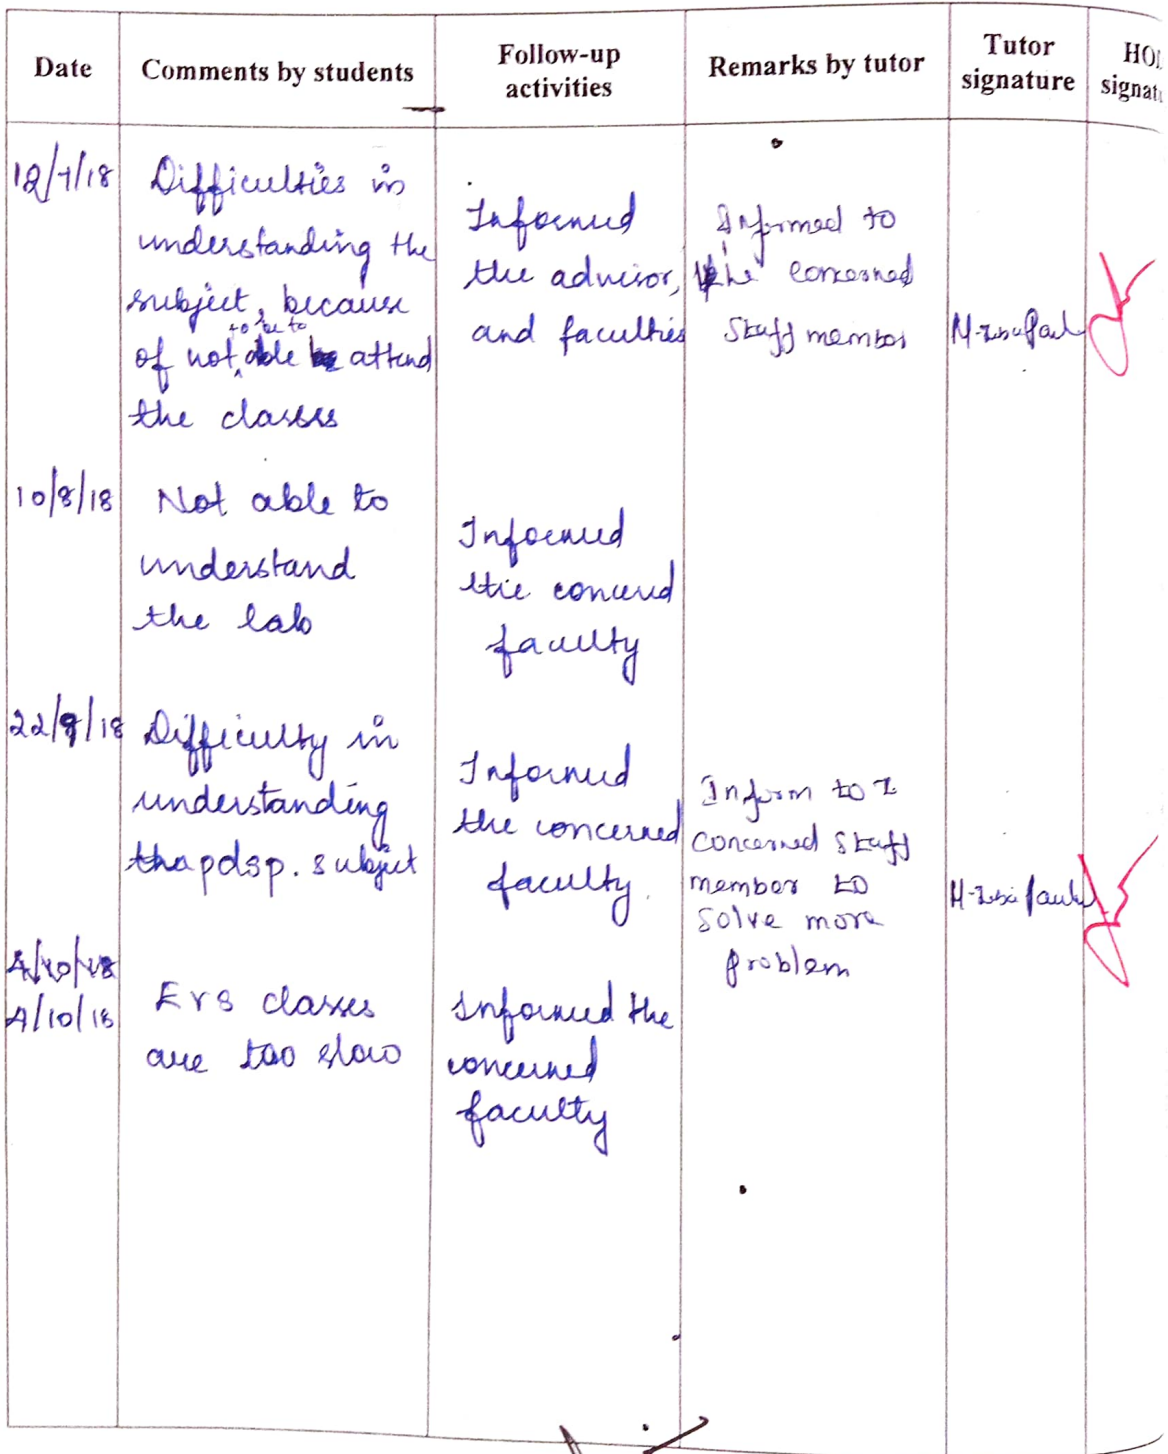 Date
Comments by students
Follow-up
activities
Remarks by tutor
Tutor
signature
HOD
signatu
12/7/18
Difficulties in
understanding the
subject, because
to be to
of not, able attend
the classes
Informed
the advisor,
and faculties
Informed to
the concerned
Staff member
10/8/18
Not able to
understand
the lab
Informed
the concerned
faculty
22/9/18
Difficulty in
understanding
tha pdsp. subject
Informed
the concerned
faculty.
Inform to
concerned Staff
member to
solve more
problem
4/10/18
4/10/18
EVS classes
are too slow
Informed the
concerned
faculty